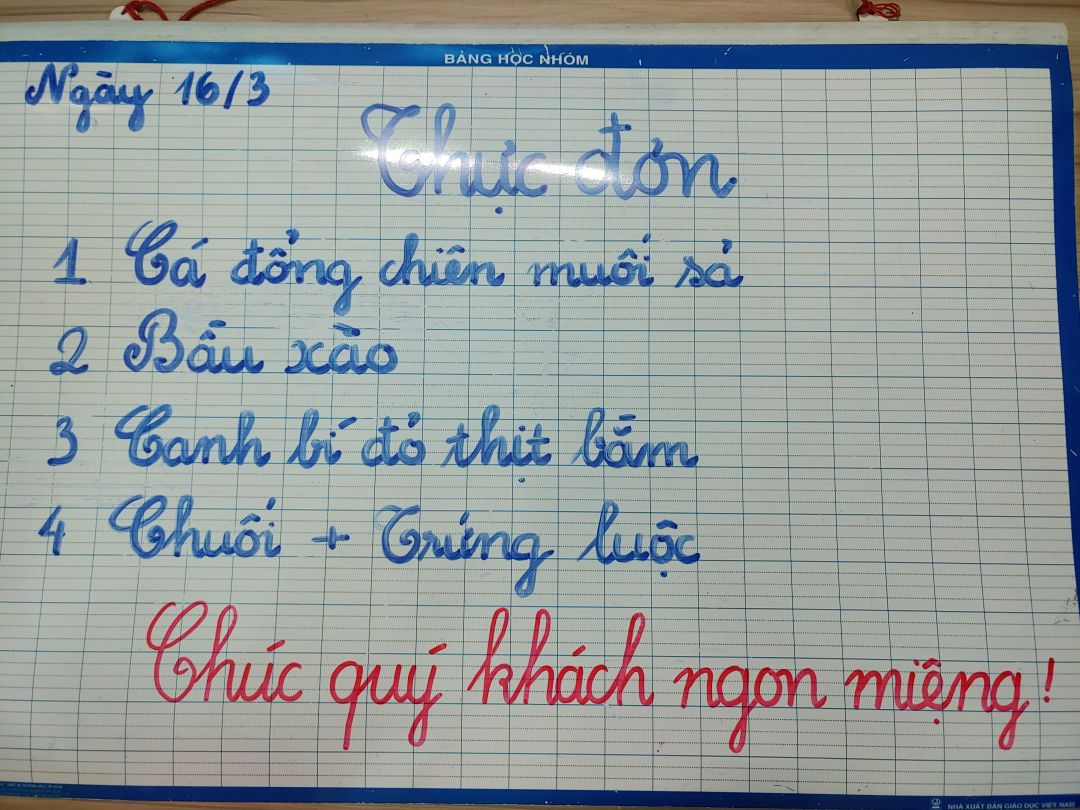 BẢNG HỌC NHÓM
Ngày 16/3
Thực đơn
1 Cá đổng chiên muối sả
2 Bầu xào
3 Canh bí đỏ thịt bằm
4 Chuối + Trứng luộc
Chúc quý khách ngon miệng!
NHÀ XUẤT BẢN GIÁO DỤC VIỆT NAM